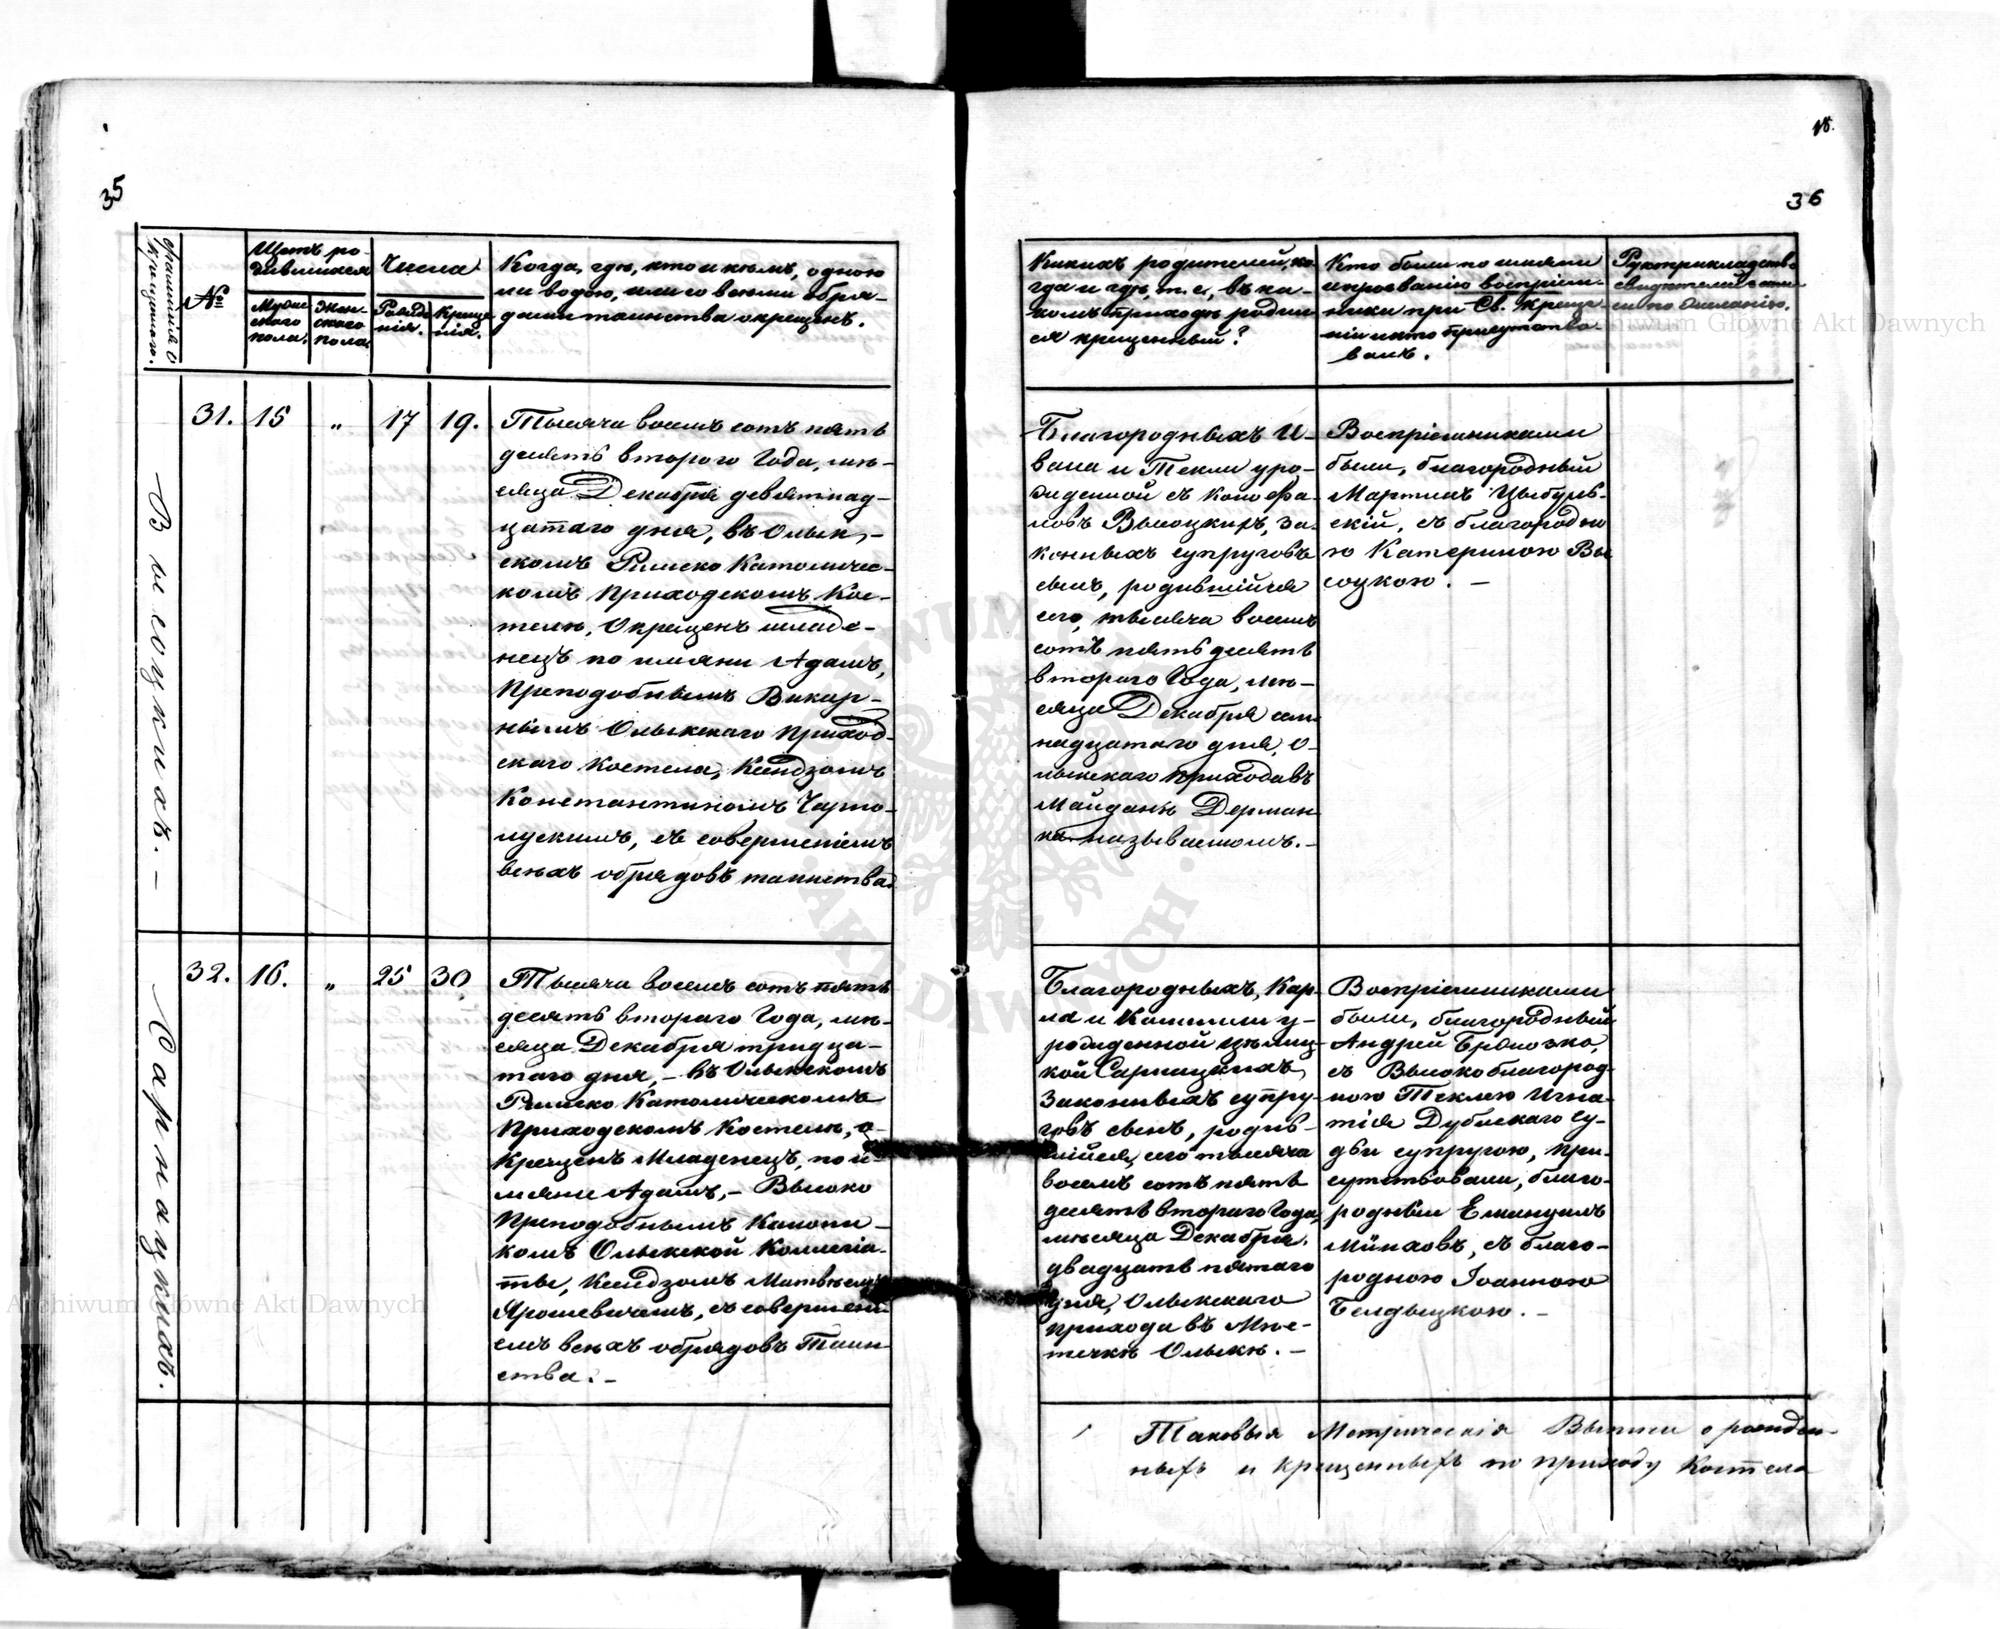 35
Фамилія О
крещаемаго.
№
Щетъ ро-
дившихся
Мужес
скаго
пола.
Жен-
скаго
пола.
Числа
Рожде
нія.
Креще
нія.
Когда, гдѣ, кто и кѣмъ, одною
ли водою, или со всѣми обря-
дами таинства окрещенъ.
Высоцкихъ. —
31.
15
"
17
19.
Тысяча восемъ сотъ пять
десятъ второго Года, мѣ-
сяца Декабря девятнад-
цатаго дня, въ Олык-
скомъ Римско Католичес-
комъ Приходскомъ Кос-
телѣ, Окрещенъ младе-
нецъ по имяни Адамъ,
Преподобнымъ Викар-
нымъ Олыкскаго Приход-
скаго Костела, Ксендзомъ
Константиномъ Чарно-
лускимъ, съ совершеніемъ
всѣхъ обрядовъ таинства.
Сарнацкихъ.
32.
16.
"
25
30
Тысяча восемъ сотъ пять
десятъ втораго Года, мѣ-
сяца Декабря тридца-
таго дня, — въ Олыкскомъ
Римско Католическомъ
Приходскомъ Костелѣ, о-
крещенъ Младенецъ, по и-
мяни Адамъ, — Высоко
Преподобнымъ Канони-
комъ Олыкской Коллегіа-
ты, Ксендзомъ Матвѣемъ
Ярошевичемъ, съ совершені
емъ всѣхъ обрядовъ Таин-
ства. —
18.
36
Какихъ родителей, ко-
гда и гдѣ, т. е., въ ка-
комъ приходѣ родил
ся крещенный?
Кто были по имяни
и прозванію воспріем-
ники при Св. Креще-
ніи и кто присутство-
валъ.
Рукоприкладств.
свидѣтелей если
по желанію.
Благородныхъ И-
вана и Текли уро-
жденной съ Конофа-
ловъ Высоцкихъ, за-
конныхъ супруговъ
сынъ, родившійся
сего, тысяча восемъ
сотъ пять десятъ
второго Года, мѣ-
сяца Декабря сем-
надцатаго дня, О-
лыкскаго прихода въ
Майданѣ Дерман
ка называемомъ. —
Воспріемниками
были, благородный
Мартинъ Цыбуль-
скій, съ благородно
ю Катериною Вы
соцкою. —
Благородныхъ, Кар-
ла и Камилли у-
рожденной
кой Сарнацкихъ,
Законныхъ супру-
говъ сынъ, родив-
шійся, сего тысяча
восемъ сотъ пять
десятъ втораго Года,
мѣсяца Декабря
двадцать пятаго
дня, Олыкскаго
прихода въ Мѣс-
течкѣ Олыкѣ. —
Воспріемниками
были, благородный
Андрей
съ Высокоблагород
ною Теклею Игна-
тія Дубенскаго Су-
дьи супругою, при-
сутствовали, благо-
родный Емануилъ
Минховъ, съ благо-
родною Іоанною
Белдыцкою. —
Таковыя Метрическія Выписи о рожден-
ныхъ и крещенныхъ по приходу Костела
Archiwum Główne Akt Dawnych
Archiwum Główne Akt Dawnych